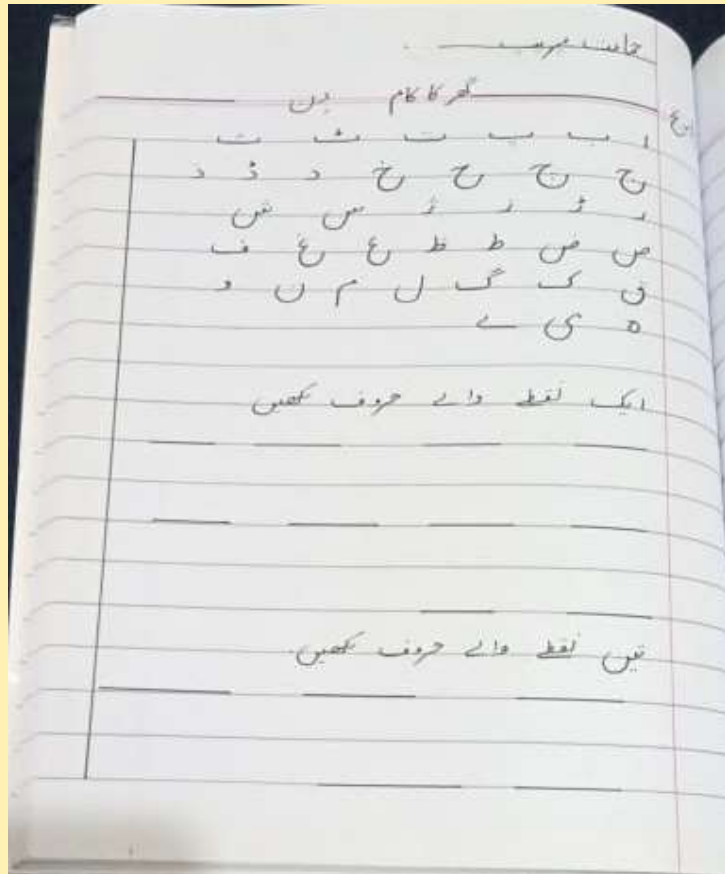 گھر کا کام دن
ا ب پ ت ٹ ث
ج چ ح خ د ڈ ذ
ر ڑ ز ژ س ش
ص ض ط ظ ع غ ف
ق ک گ ل م ں و
ہ ی ے
ایک نقطے والے حروف لکھیں
تین نقطے والے حروف لکھیں۔